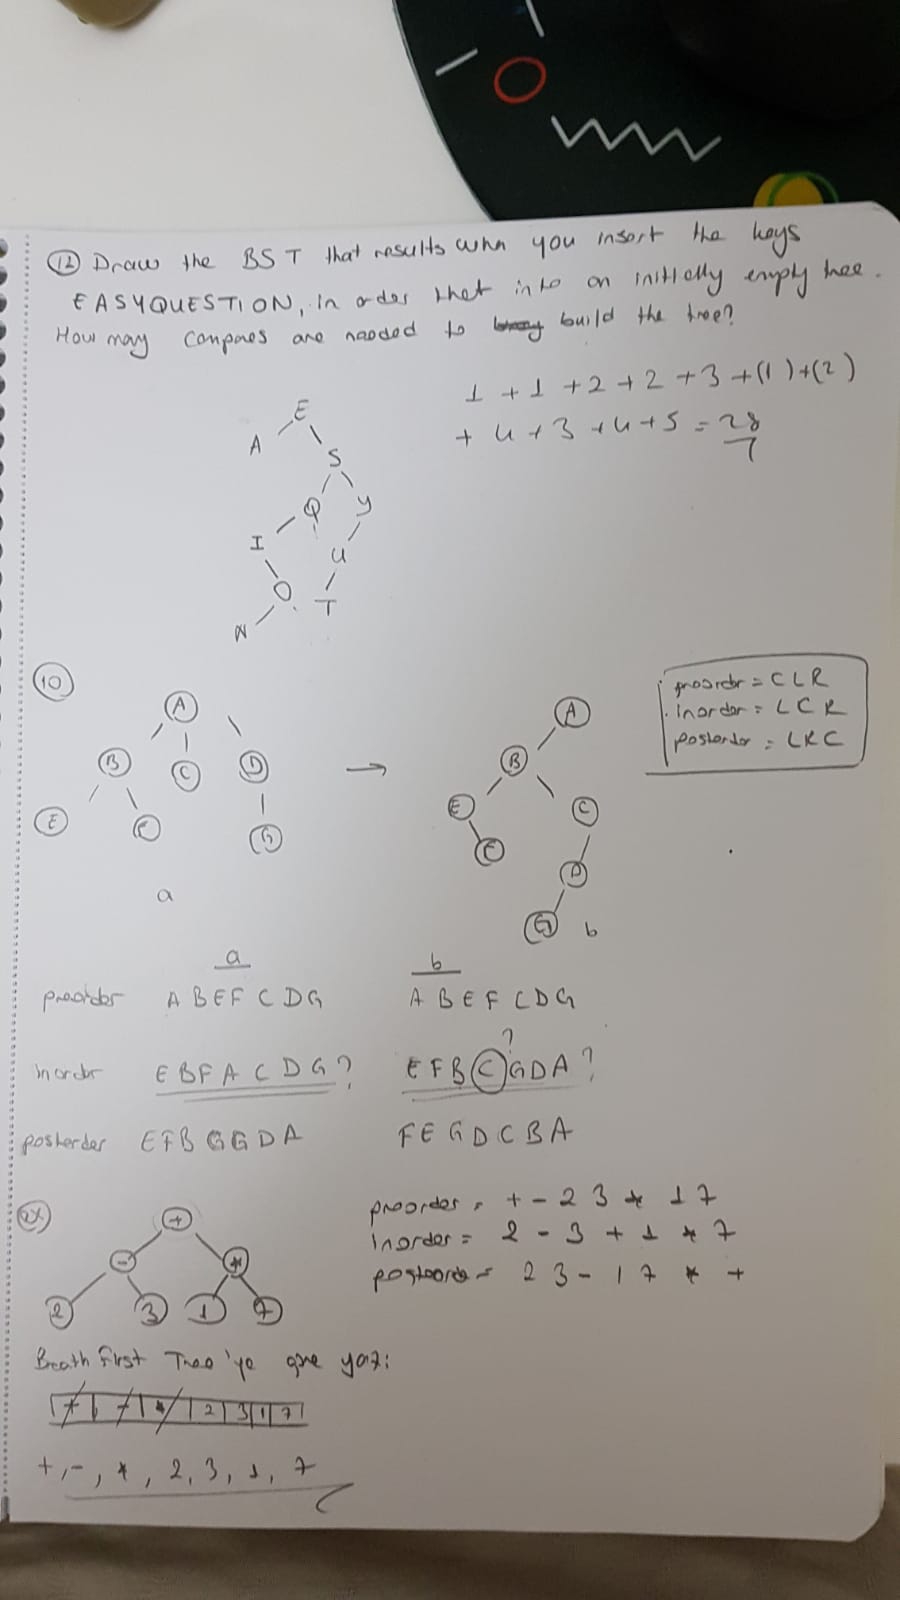 12 Draw the BST that results whn you insert the keys
EASYQUESTION, in order that into an initially empty tree.
How may compares are needed to build the tree?
1 + 1 + 2 + 2 + 3 + (1) + (2)
+ 4 + 3 + 4 + 5 = 28
E
A
S
Q
Y
I
U
O
T
N
10
A
B C D
E F G
a
→
A
B
E C
F D
G b
preorder = CLR
inorder = LCR
postorder = LRC
a b
preorder ABEFCDG ABEFCDG
inorder EBFACDG? EFBCGDA?
?
postorder EFB GGDA FEGDCBA
+
- *
2 3 1 7
preorder = + - 2 3 * 1 7
inorder = 2 - 3 + 1 * 7
postorder = 2 3 - 1 7 * +
Breath first Tree 'ye göre yaz:
+ - * 2 3 1 7
+, -, *, 2, 3, 1, 7